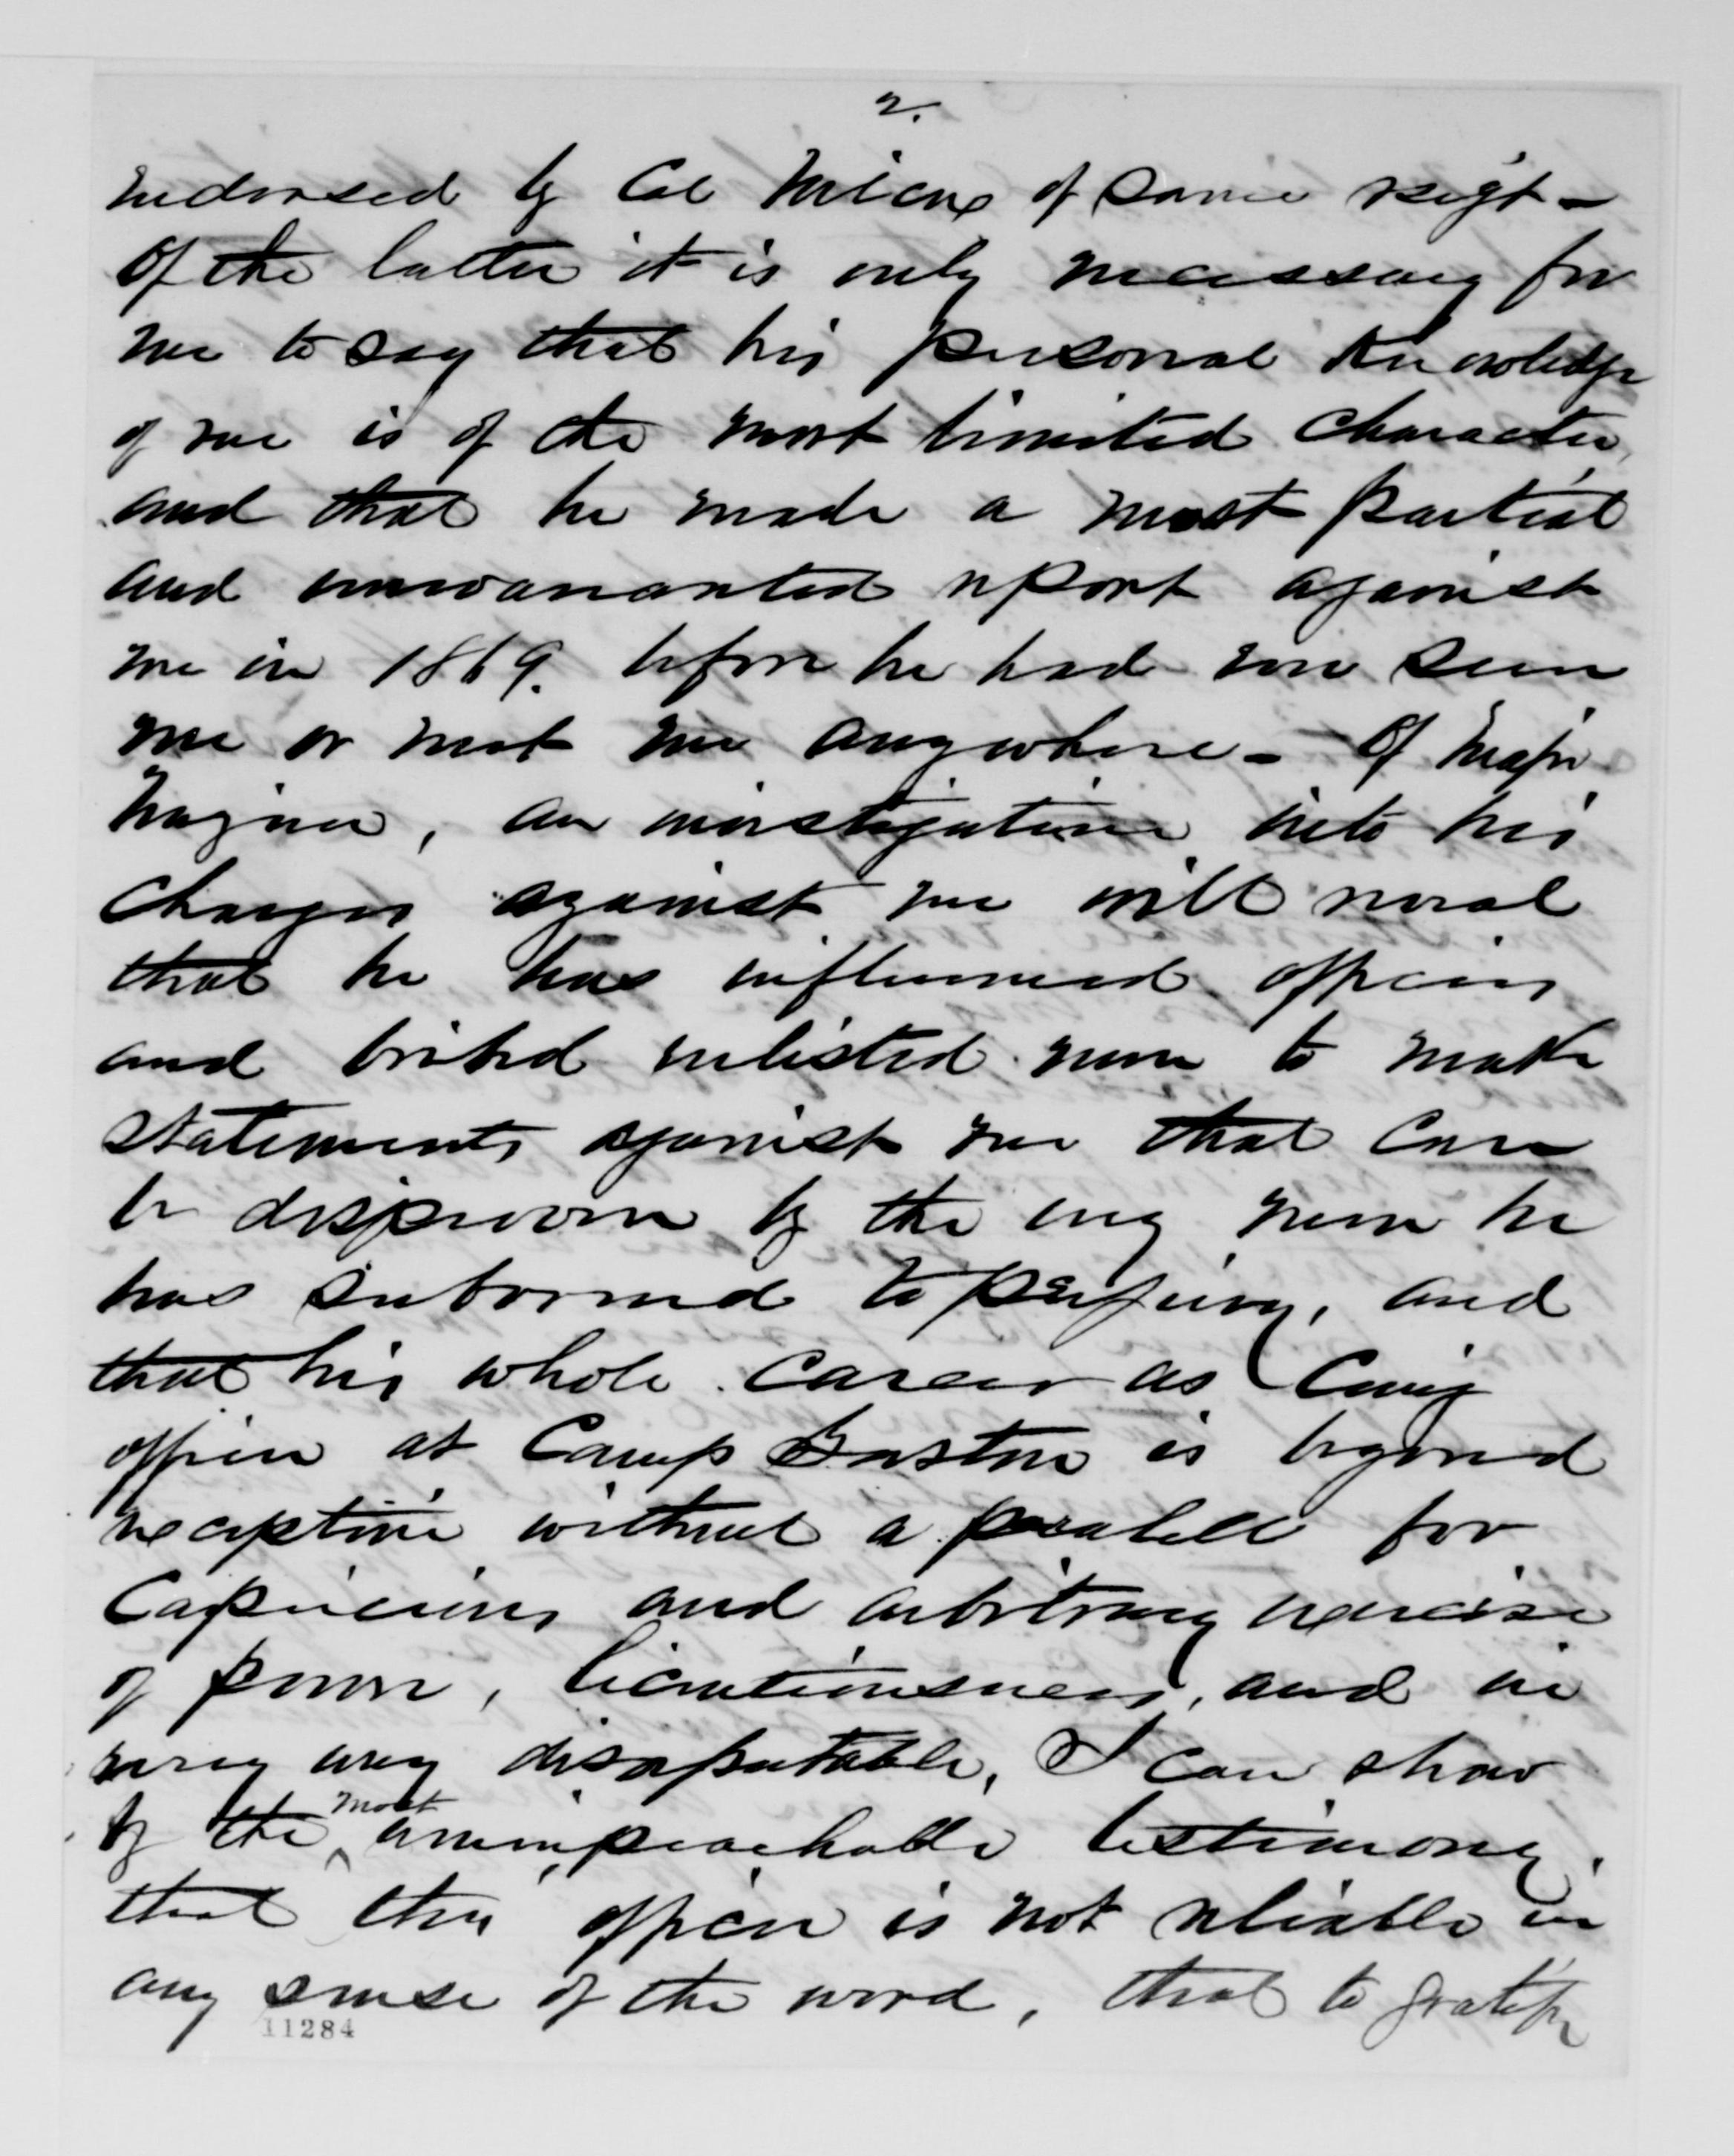 2.
endorsed by Col Mizner of same regt -
Of the latter it is only necessary for
me to say that his personal knowledge
of me is of the most limited character,
and that he made a most partial
and unwarranted report against
me in 1869. before he had ever seen
me or met me anywhere - Of Major
Wagner, an investigation into his
charges against me will reveal
that he has influenced officers
and bribed enlisted men to make
statements against me that can
be disproven by the very men he
has suborned to perjury, and
that his whole career as Comg
officer at Camp Gaston is beyond
exception without a paralell for
capricious and arbitrary exercise
of power, licentiousness, and in
every way disreputable, I can show
by the most unimpeachable testimony.
that this officer is not reliable in
any sense of the word, that to gratify
11284